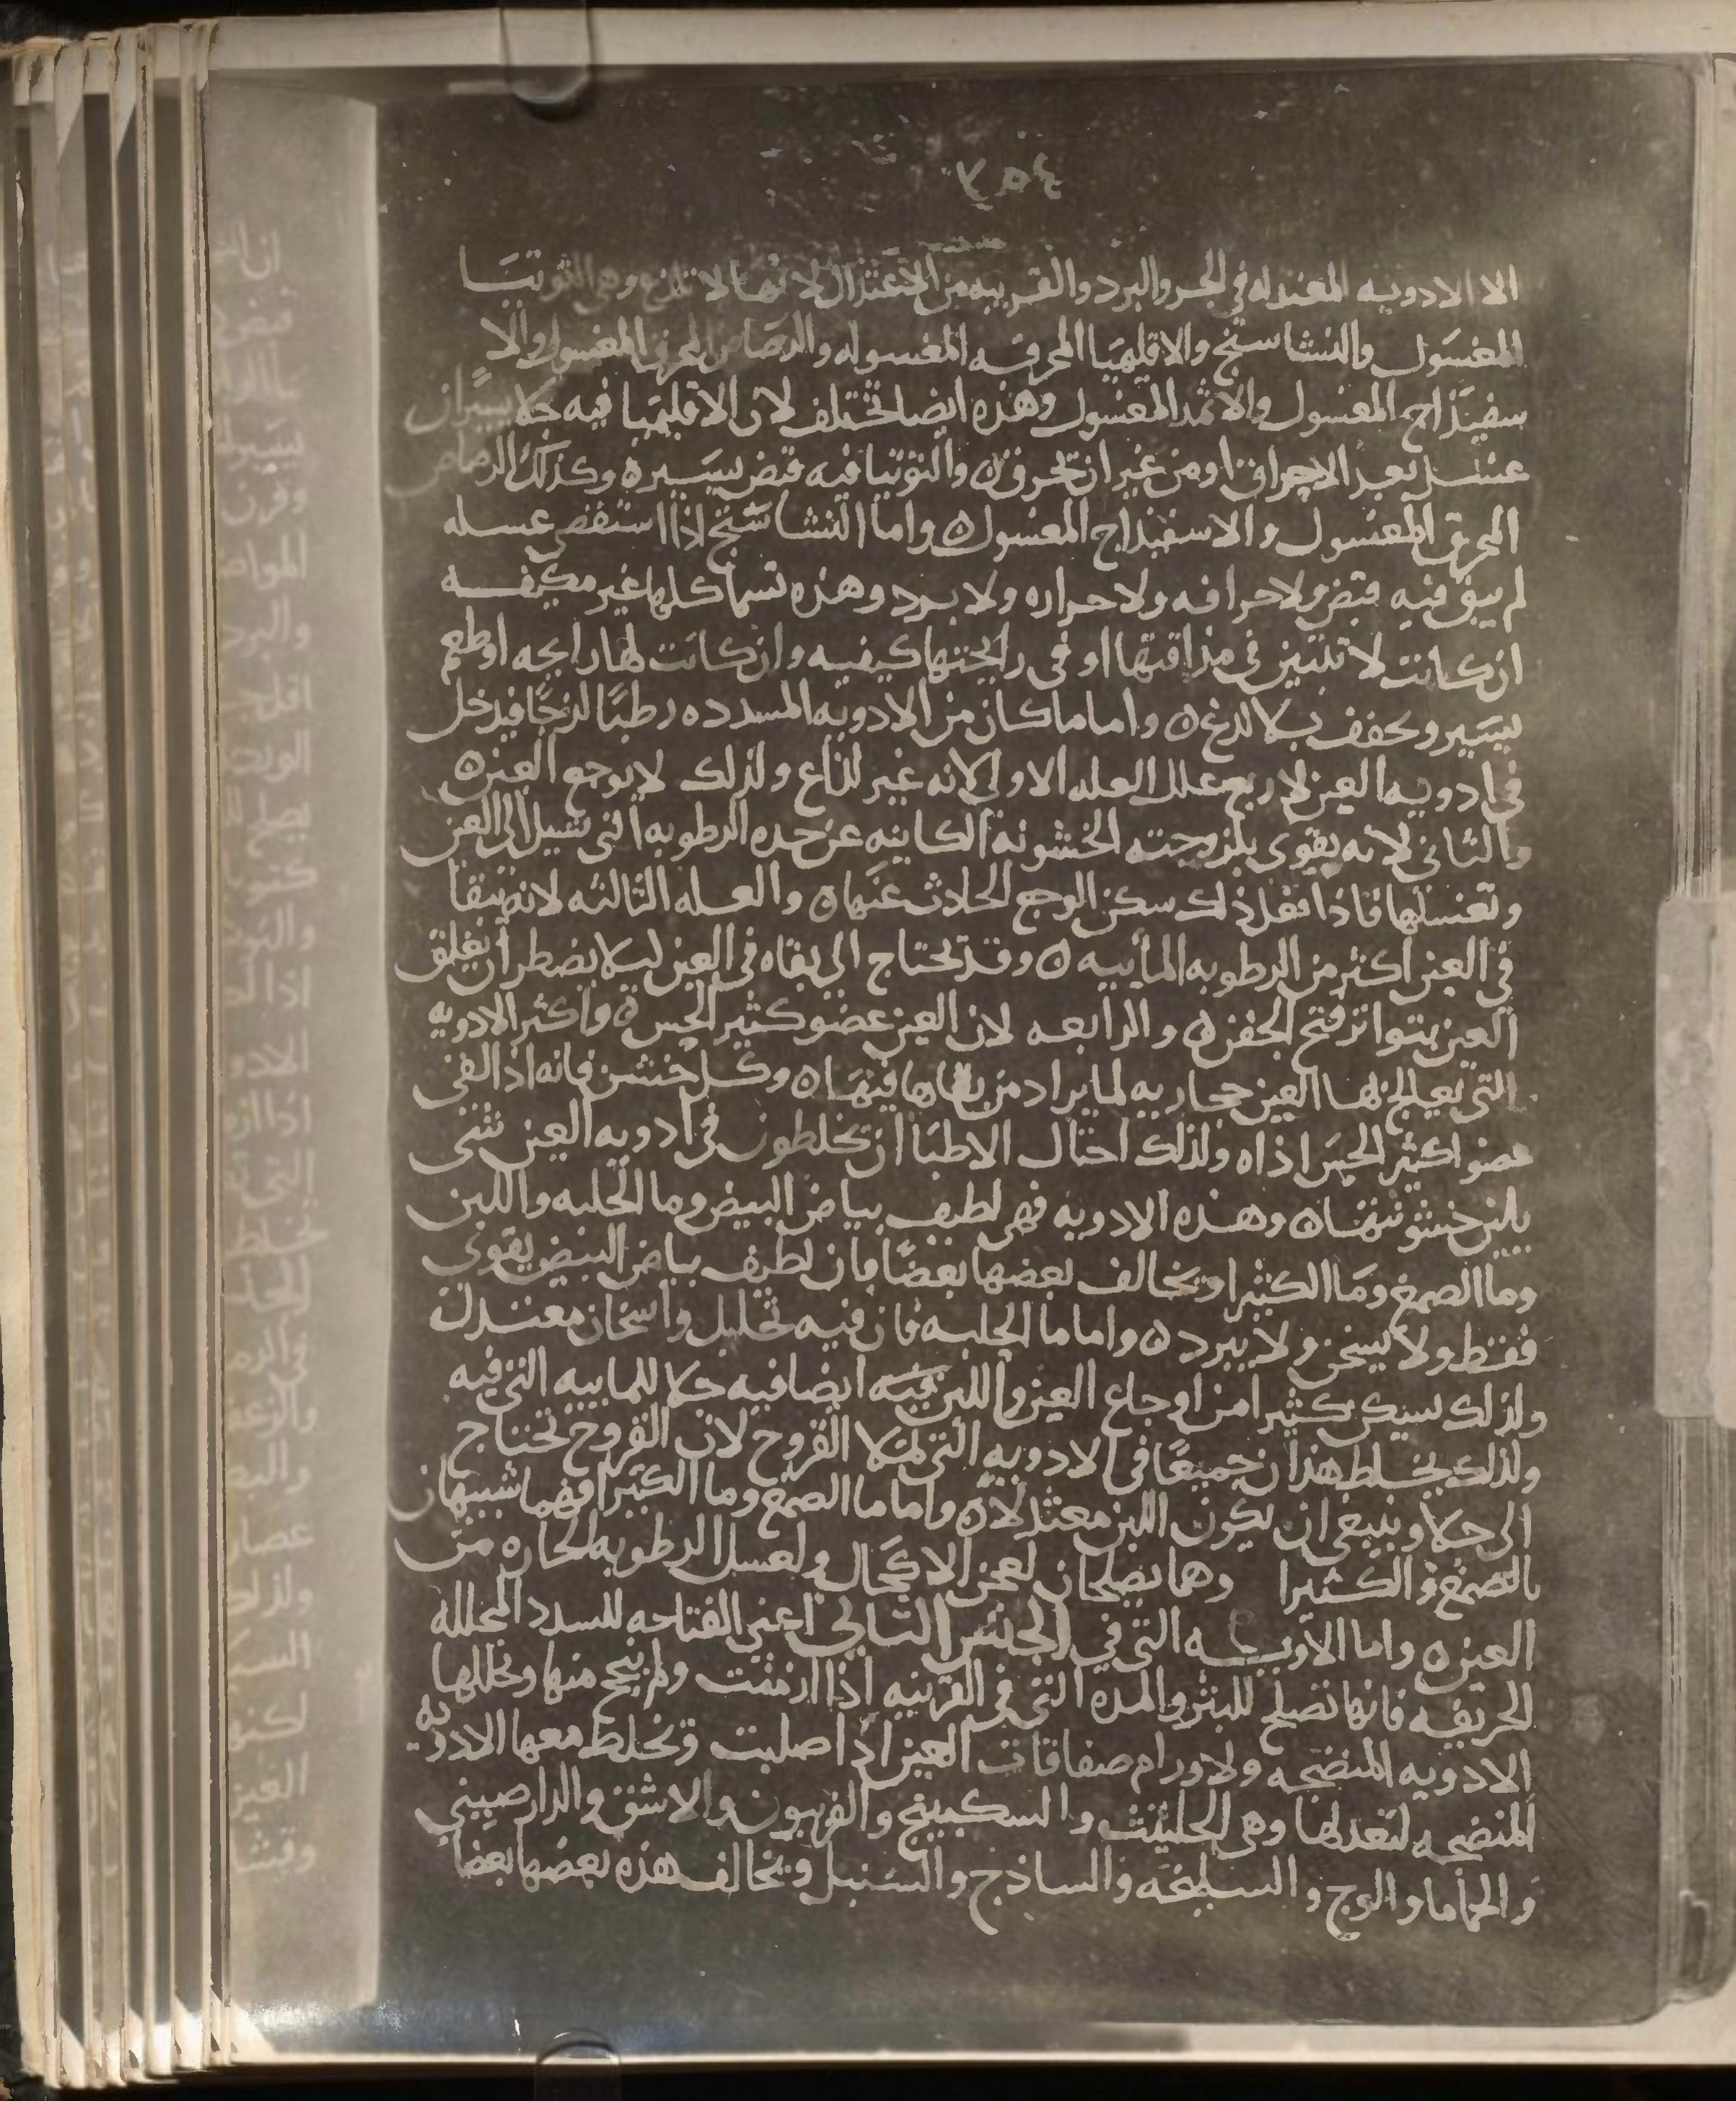 الا الادويه المعتدله في الحر والبرد والقريبه من الاعتدال لانها لا تلذع وهي التوتيا
المغسول والنشاستج والاقليميا المحرقه المغسوله والرصاص المحرق المغسول والا
سفيذاج المغسول والاثمد المغسول وهذه ايضا تختلف لان الاقليميا فيه جلا يسير ان
غسل بعد الاحراق او من غير ان تحرق ه والتوتيا فيه قبض يسيره وكذلك الرصاص
المحرق المغسول والاسفيذاج المغسول ه واما النشاستج اذا استقصى غسله
لم يبق فيه قبض ولا حرافه ولا حراره ولا برد وهذه تسما كلها غير مكيفه
ان كانت لا تتبين في مذاقتها او في رايحتها كيفيه وان كانت لها رايحه او طعم
يسير وتجفف بلا لذع ه واما ما كان من الادويه المسدده رطبا لزجا فيدخل
في ادويه العين لاربع علل العله الاولى لانه غير لذاع ولذلك لا يوجع العين ه
والثاني لانه يقوى بلزوجته الخشونه الكاينه عن حده الرطوبه التي تسيل الى العين
وتغسلها فاذا فعل ذلك سكن الوجع الحادث عنها ه والعله الثالثه لانه يبقا
في العين اكثر من الرطوبه المائيه ه وقد تحتاج الى بقاه في العين ليلا يضطر ان يغلق
العين بتواتر فتح الجفن ه والرابعه لان العين عضو كثير الحس ه واكثر الادويه
التي يعالج بها العين حجاريه لما يراد من بقاها فيها ه وكل خشن فانه اذا لقى
عضوا كثير الحس اذاه ولذلك احتال الاطبا ان يخلطون في ادويه العين شى
يلين خشونتها ه وهذه الادويه فهى لطيف بياض البيض وما الحلبه واللبن
وما الصمغ وما الكثيرا ويخالف بعضها بعضا فان لطيف بياض البيض يقوى
فقط ولا يسخن ولا يبرد ه واما ما الحلبه فان فيه تحليل واسخان معتدل
ولذلك يسكن كثيرا من اوجاع العين واللبن فيه ايضا فيه جلا للمائيه التي فيه
ولذلك يخلط هذان جميعا في الادويه التي تملا القروح لان القروح تحتاج
الى جلا وينبغى ان يكون اللبن معتدلا ه واما ما الصمغ وما الكثيرا فهما شبيهان
بالصمغ والكثيرا وهما يصلحان لعجن الاكحال ولغسل الرطوبه الحاره من
العين ه واما الادويه التي في الجنس الثاني اعنى الفتاحه للسدد المحلله
الحريفه فانها تصلح للبثر والمده التي في القرنيه اذا ازمنت ولم ينجح منها وتحللها
الادويه المنضجه ولاورام صفاقات العين اذا صلبت وتخلط معها الادويه
المنضجه لتعدلها وهى الحلتيت والسكبينج والفربيون والاشق والدارصينى
والحماما والوج والسليخه والساذج والسنبل ويخالف هذه بعضها بعضا